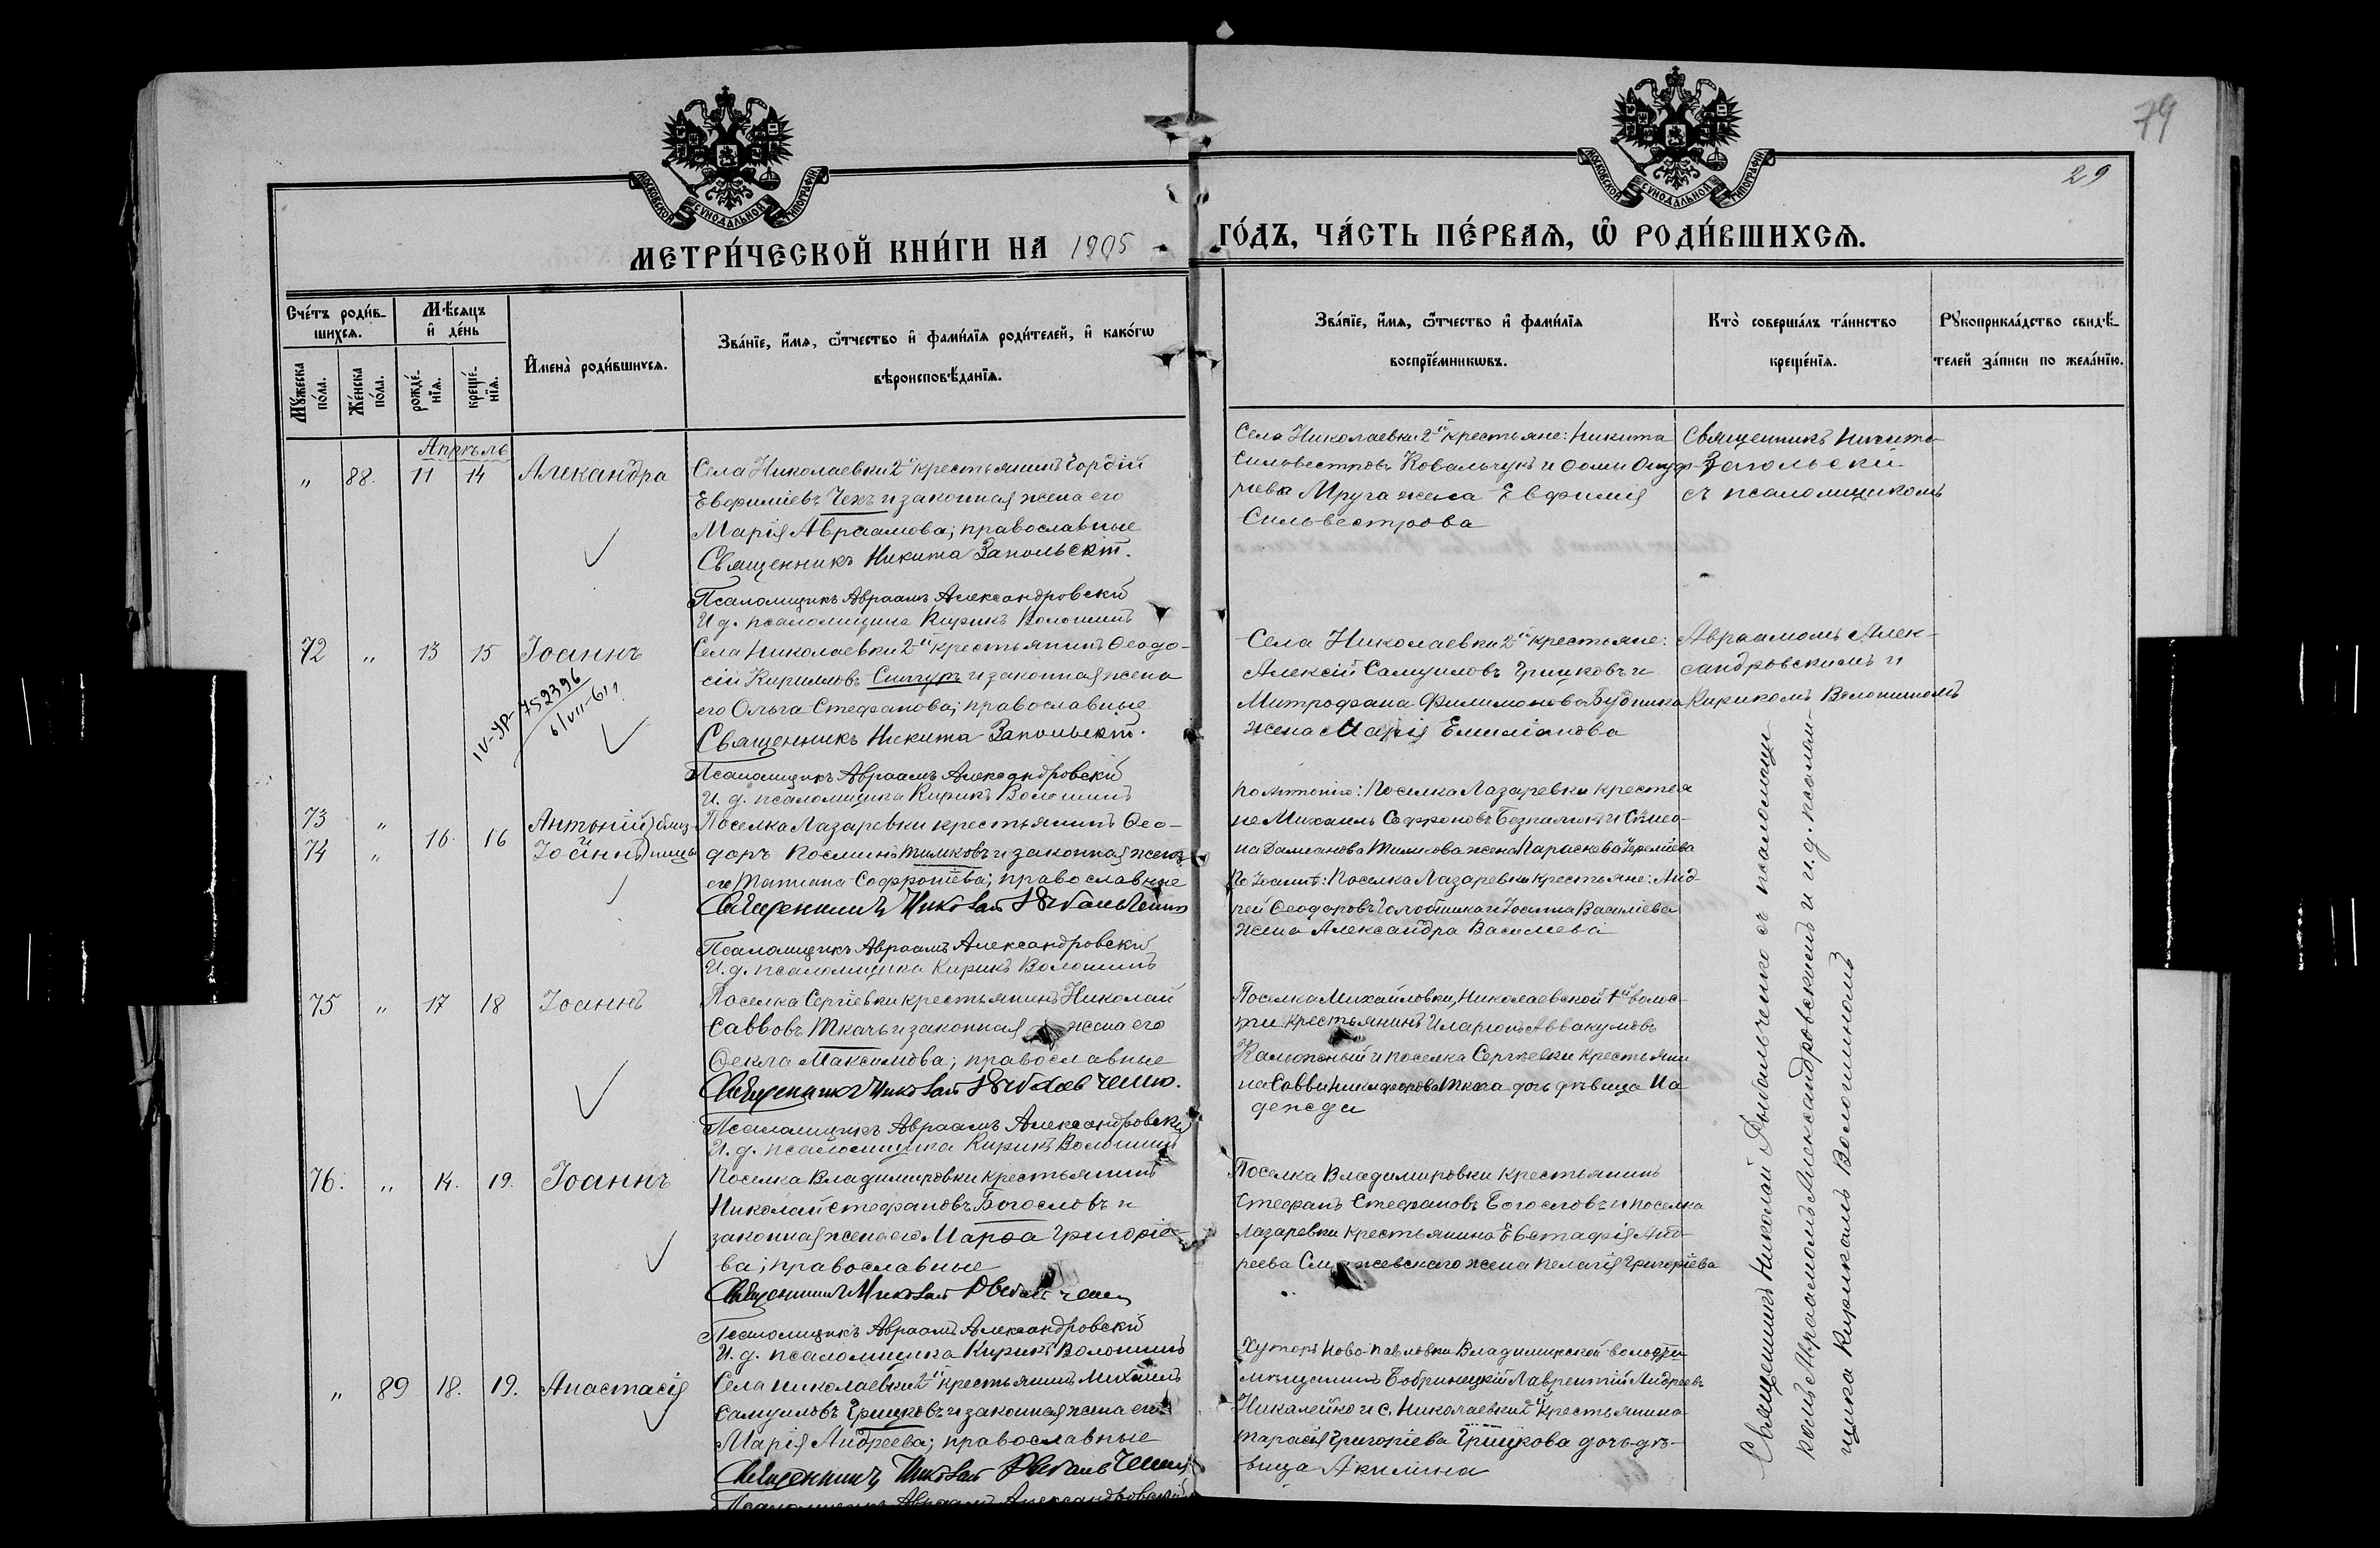 79
29
МОСКОВСКОЙ СѴНОДАЛЬНОЙ ТИПОГРАФІИ
МОСКОВСКОЙ СѴНОДАЛЬНОЙ ТИПОГРАФІИ
МЕТРИ́ЧЕСКОЙ КНИ́ГИ НА 1905
ГО́ДЪ, ЧА́СТЬ ПЕ́РВАѦ, Ѡ҆ РОДИ́ВШИХСѦ.
Сче́тъ роди́в-
шихсѧ.
Мꙋ́жеска по́ла.
Же́нска по́ла.
Мѣ́сѧцъ
и҆ де́нь
рожде́-нїѧ.
креще́-нїѧ.
И҆мена̀ роди́вшихсѧ.
Зва́нїе, и҆́мѧ, ѻ҆́тчество и҆ фами́лїѧ роди́телей, и҆ како́гѡ
вѣроисповѣ́данїѧ.
Зва́нїе, и҆́мѧ, ѻ҆́тчество и҆ фами́лїѧ
воспрїе́мникѡвъ.
Кто̀ соверша́лъ та́инство
креще́нїѧ.
Рꙋкоприкла́дство свидѣ́-
телей за́писи по жела́нїю.
Апрѣль
„ 88. 11 14 Алекандра
Села Николаевки 2й крестьянинъ Гордій
Евфиміевъ Чехъ и законная жена его
Марія Авраамова; православные
Священникъ Никита Запольскій.
Псаломщикъ Авраамъ Александровскій
И д. псаломщика Кирикъ Волошинъ
Села Николаевки 2й крестьяне: Никита
Сильвестровъ Ковальчукъ и
Мруга жена Евфимія
Сильвестрова
Священникъ Никита
Запольскій
съ псаломщикомъ
72 „ 13 15 Іоаннъ
IV-УР-752396
6/VII-61
Села Николаевки 2й крестьянинъ Ѳеодо-
сій Кирилловъ и законная жена
его Ольга Стефанова; православные
Священникъ Никита Запольскій.
Псаломщикъ Авраамъ Александровскій
И. д. псаломщика Кирикъ Волошинъ
Села Николаевки 2й крестьяне:
Алексій Самуиловъ Грицковъ и
Митрофана Филимонова Будника
жена Марія Емиліанова
Авраамомъ Алек-
сандровскимъ и
Кирикомъ Волошиномъ
73 „ 16 16 Антоній близ-
74 „ Іоаннъ нецы
Поселка Лазаревки крестьянинъ Ѳео-
доръ Косминъ Тимковъ и законная жена
его Татіана Софроніева; православные
Священникъ Николай Рыбальченко
Псаломщикъ Авраамъ Александровскій
И. д. псаломщика Кирикъ Волошинъ
По Антонію: Поселка Лазаревки крестья
не Михаилъ Софроновъ и Симео-
на Даміанова Тимкова жена Параскева
По Іоаннѣ: Поселка Лазаревки крестьяне: Анд-
рей Ѳеодоровъ и Іоанна Василіева
жена Александра Василіева
75 „ 17 18 Іоаннъ
Поселка Сергіевки крестьянинъ Николай
Саввовъ Ткачъ и законная жена его
Ѳекла Максимова; православные
Священникъ Николай Рыбальченко.
Псаломщикъ Авраамъ Александровскій
И. д. псаломщика Кирикъ Волошинъ
Поселка Михайловки, Николаевской 1й волос-
ти крестьянинъ Иларіонъ Аввакумовъ
Калюжный и поселка Сергіевки крестьяни
на Саввы Никифорова Ткача дочь дѣвица На
дежда
76. „ 14. 19. Іоаннъ
Поселка Владимировки крестьянинъ
Николай Стефановъ Богословъ и
законная жена его Марѳа Григоріе-
ва; православные
Священникъ Николай Рыбальченко
Псаломщикъ Авраамъ Александровскій
И. д. псаломщика Кирикъ Волошинъ
Поселка Владимировки крестьянинъ
Стефанъ Стефановъ Богословъ и поселка
Лазаревки крестьянина Евстафія Анд-
реева жена Пелагія Григоріева
„ 89 18. 19. Анастасія
Села Николаевки 2й крестьянинъ Михаилъ
Самуиловъ Грицковъ и законная жена его
Марія Андреева; православные
Священникъ Николай Рыбальченко
Псаломщикъ Авраамъ Александровскій
Хуторъ Ново-Павловки Владимирской волости
мѣщанинъ Бобринецкій Лаврентій Андреевъ
Никалейко и с. Николаевки 2й крестьянина
Тарасія Григоріева Грицкова дочь дѣ-
вица Акилина
Священникъ Николай Рыбальченко съ псаломщи-
комъ Авраамомъ Александровскимъ и и. д. псалом-
щика Кирикомъ Волошиномъ